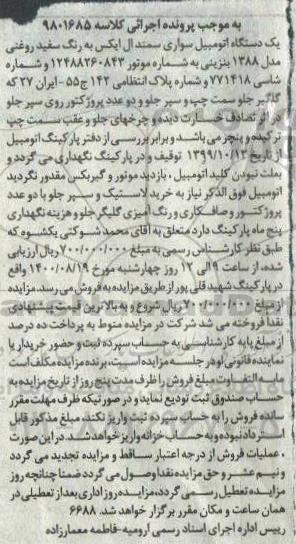 به موجب پرونده اجرائی کلاسه ۹۸۰۱۶۸۵
یک دستگاه اتومبیل سواری سمند ال ایکس به رنگ سفید روغنی
مدل ۱۳۸۸ بنزینی به شماره موتور ۱۲۴۸۸۲۶۰۸۴۳ و شماره
شاسی ۷۷۱۴۱۸ و شماره پلاک انتظامی ۱۴۲ ج ۵۵ - ایران ۲۷ که
گلگیر جلو سمت چپ و سپر جلو و دو عدد پروژکتور روی سپر جلو
در اثر تصادف خسارت دیده و چرخهای جلو و عقب سمت چپ
ترکیده و پنچر می باشد و برابر بررسی از دفتر پارکینگ اتومبیل
از تاریخ ۱۳۹۹/۱۰/۱۳ توقیف و در پارکینگ نگهداری می گردد و
بعلت نبودن کلید اتومبیل ، بازدید موتور و گیربکس مقدور نگردید
اتومبیل فوق الذکر نیاز به خرید لاستیک و سپر جلو با دو عدد
پروژکتور و صافکاری و رنگ آمیزی گلگیر جلو و هزینه نگهداری
پنج ماه پارکینگ دارد متعلق به آقای محمد شوکتی یکشوه که
طبق نظر کارشناس رسمی به مبلغ ۷۰۰/۰۰۰/۰۰۰ ریال ارزیابی
شده، از ساعت ۹ الی ۱۲ روز چهارشنبه مورخ ۱۴۰۰/۰۸/۱۹ واقع
در پارکینگ شهید قلی پور از طریق مزایده به فروش می رسد. مزایده
از مبلغ ۷۰۰/۰۰۰/۰۰۰ ریال شروع و به بالاترین قیمت پیشنهادی
نقدا فروخته می شد شرکت در مزایده منوط به پرداخت ده درصد
از مبلغ پایه کارشناسی به حساب سپرده ثبت و حضور خریدار یا
نماینده قانونی او در جلسه مزایده است، برنده مزایده مکلف است
مابه التفاوت مبلغ فروش را ظرف مدت پنج روز از تاریخ مزایده به
حساب صندوق ثبت تودیع نماید و در صورتیکه ظرف مهلت مقرر
مانده فروش را به حساب سپرده ثبت واریز نکند، مبلغ مذکور قابل
استرداد نبوده و به حساب خزانه واریز خواهد شد. در این صورت
، عملیات فروش از درجه اعتبار ساقط و مزایده تجدید می گردد
و نیم عشر و حق مزایده نقدا وصول می گردد ضمنا چنانچه روز
مزایده تعطیل رسمی گردد، مزایده روز اداری بعد از تعطیلی در
همان ساعت و مکان مقرر برگزار خواهد شد. ۶۶۸۸
رییس اداره اجرای اسناد رسمی ارومیه - فاطمه معمارزاده